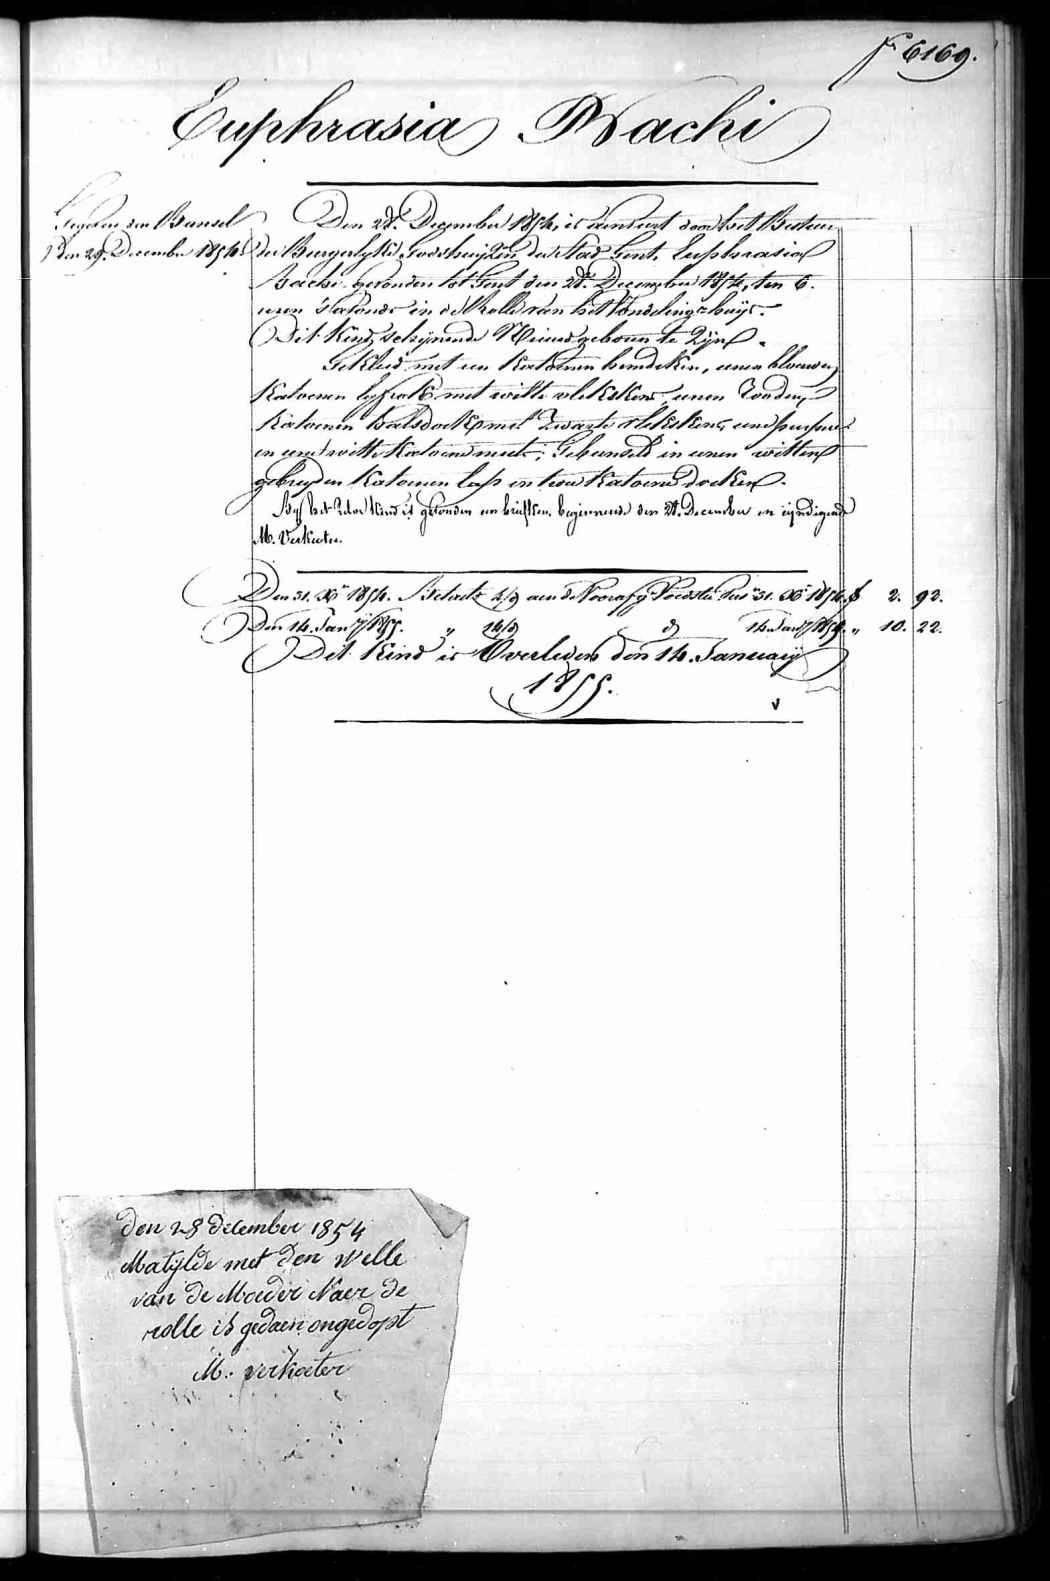 f° 6169.
Euphrasia Bachi
Gegeven den Bunsel
Den 29. December 1854.
Den 28.e December 1854, is aenveert door het Bestuur
der Burgerlyke Godshuyzen der Stad Gent, Euphrasia
Bachi, gevonden tot Gent den 28.e December 1854, ten 6.
uren 's avonds in de Rolle van het Vondelingshuys.
Dit Kind schynende Nieuwgeboren te Zyn.
Gekleed met een Katoenen hemdeken, eenen blauwen
Katoenen lyfrok met witte vlekskens, eenen Rooden
Katoenen halsdoek met Zwarte vlekskens, eene
en eene witte Katoene muts; Gebunseld in eenen witten
gebreyden Katoenen lap en twee Katoene doeken.
By het Zelve Kind is gevonden een briefken, beginnende den 28. December en eyndigende
M. Verkoeter.
Den 31. Xb 1854. Betaelt 4/9 aen de Voedster 31. Xb 1854. f 2. 92.
Den 14. January 1855. " 14/9 d 14 January " 10. 22.
Dit Kind is Overleden den 14. January
1855.
den 28 december 1854
Matylde met den welle
van de Moeder Naer de
rolle is gedaen ongedopt
M. verkoeter